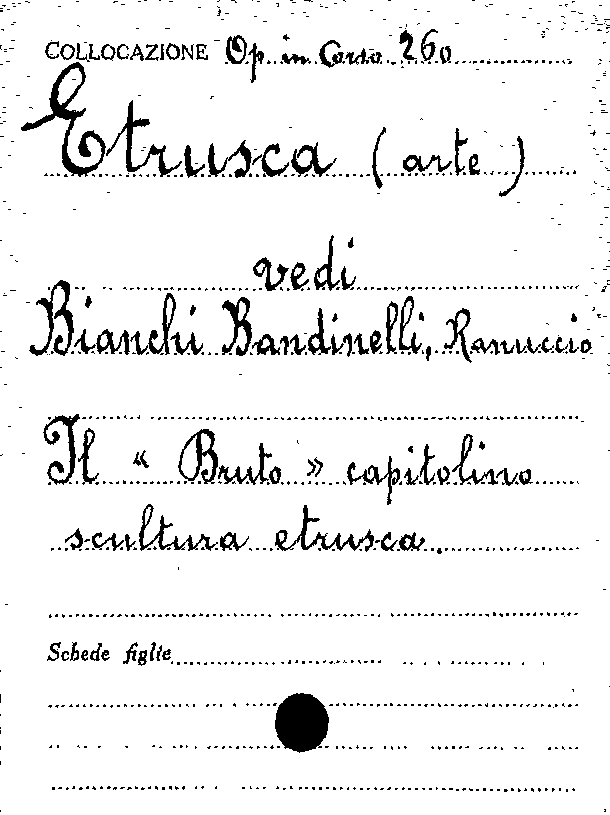 COLLOCAZIONE Op. in Corso 260
Etrusca (arte)
vedi
Bianchi Bandinelli, Ranuccio
Il « Bruto » capitolino
scultura etrusca.
Schede figlie